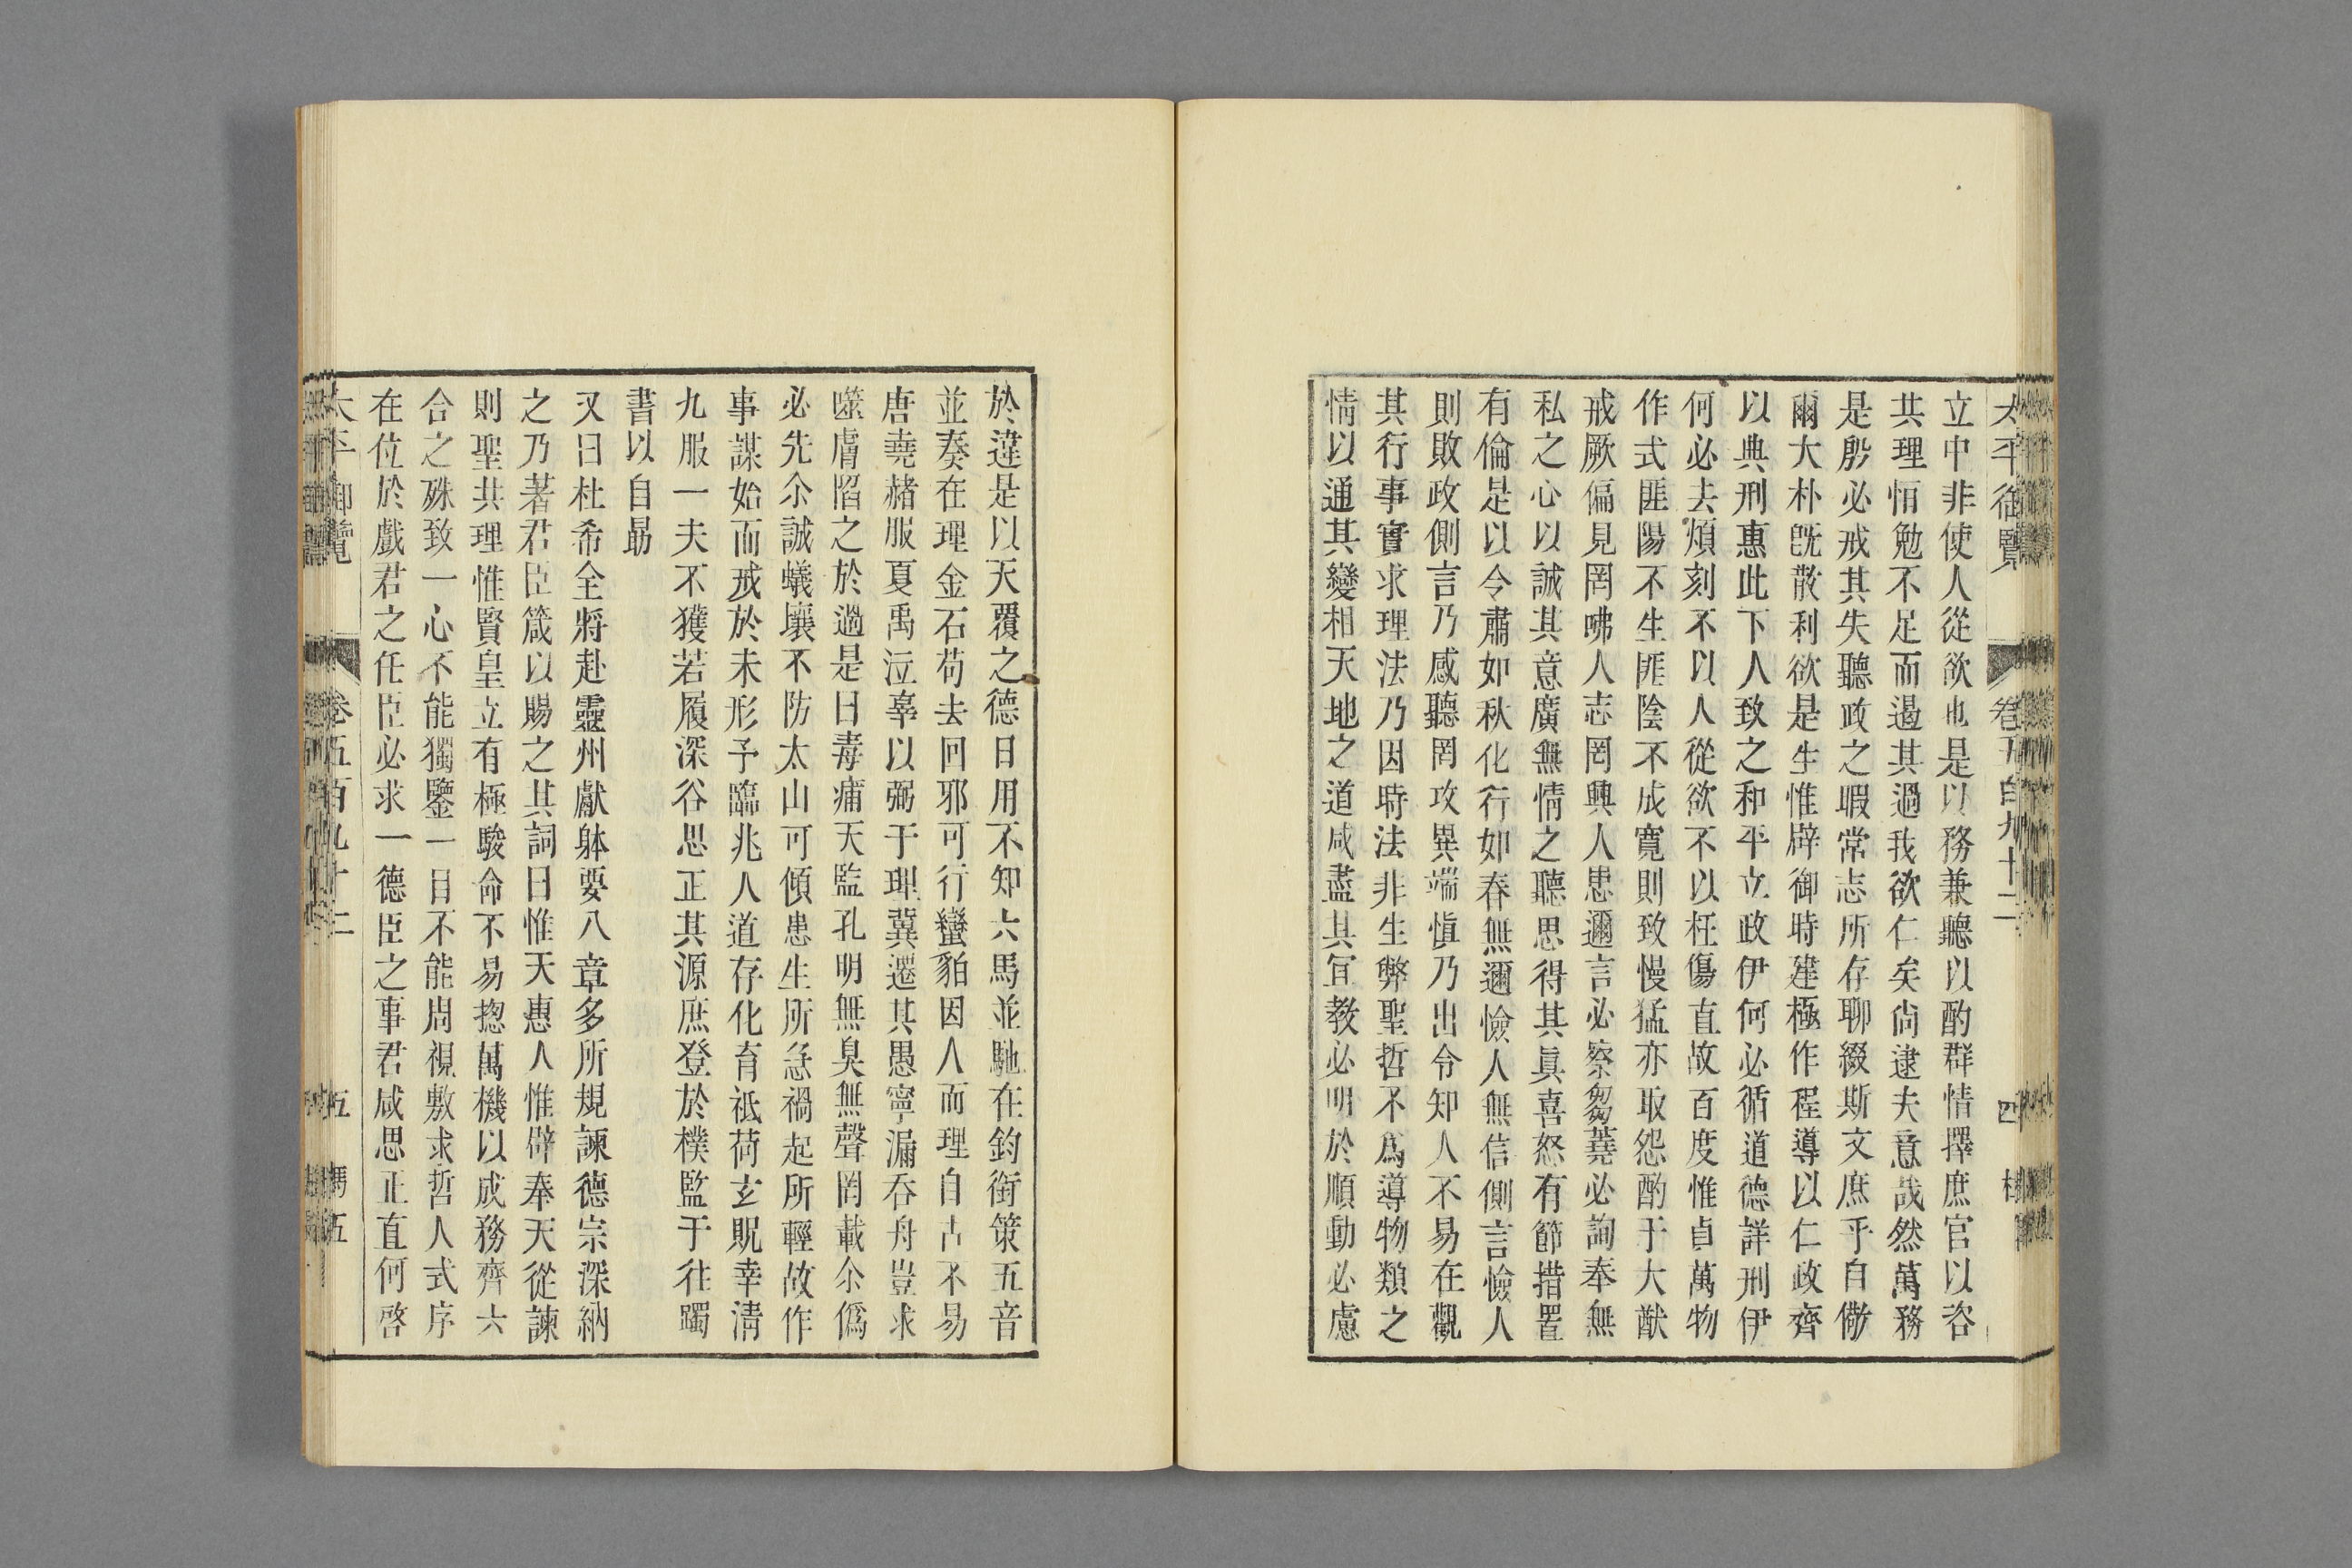 太平御覽 卷五百九十二 四
立中非使人從欲也是以務兼聽以酌群情擇庶官以咨
共理恓勉不足而遏其過我欲仁矣尙逮夫意哉然萬務
是殷必戒其失聽政之暇常志所存聊綴斯文庶乎自儆
爾大朴旣散利欲是生惟辟御時建極作程導以仁政齊
以典刑惠此下人致之和平立政伊何必循道德詳刑伊
何必去煩刻不以人從欲不以枉傷直故百度惟貞萬物
作式匪陽不生匪陰不成寬則致慢猛亦取怨酌于大猷
戒厥偏見罔咈人志罔興人患邇言必察芻蕘必詢奉無
私之心以誠其意廣無情之聽思得其眞喜怒有節措置
有倫是以令肅如秋化行如春無邇憸人無信側言憸人
則敗政側言乃惑聽罔攻異端愼乃出令知人不易在觀
其行事實求理法乃因時法非生弊聖哲不爲導物類之
情以通其變相天地之道咸盡其宜教必明於順動必慮
於違是以天覆之德日用不知六馬並馳在鈞銜策五音
並奏在理金石苟去回邪可行蠻貊因人而理自古不易
唐堯赭服夏禹泣辜以弼于理冀遷其愚寧漏吞舟豈求
噬膚陷之於過是曰毒痡天監孔明無臭無聲罔載尒僞
必先尒誠蟻壤不防太山可傾患生所忽禍起所輕故作
事謀始而戒於未形予臨兆人道存化育祇荷玄貺幸淸
九服一夫不獲若履深谷思正其源庶登於樸監于往躅
書以自勗
又曰杜希全將赴靈州獻躰要八章多所規諫德宗深納
之乃著君臣箴以賜之其詞曰惟天惠人惟辟奉天從諫
則聖共理惟賢皇立有極駿命不易揔萬機以成務齊六
合之殊致一心不能獨鑒一目不能周視敷求哲人式序
在位於戲君之任臣必求一德臣之事君咸思正直何啓
太平御覽 卷五百九十二 五